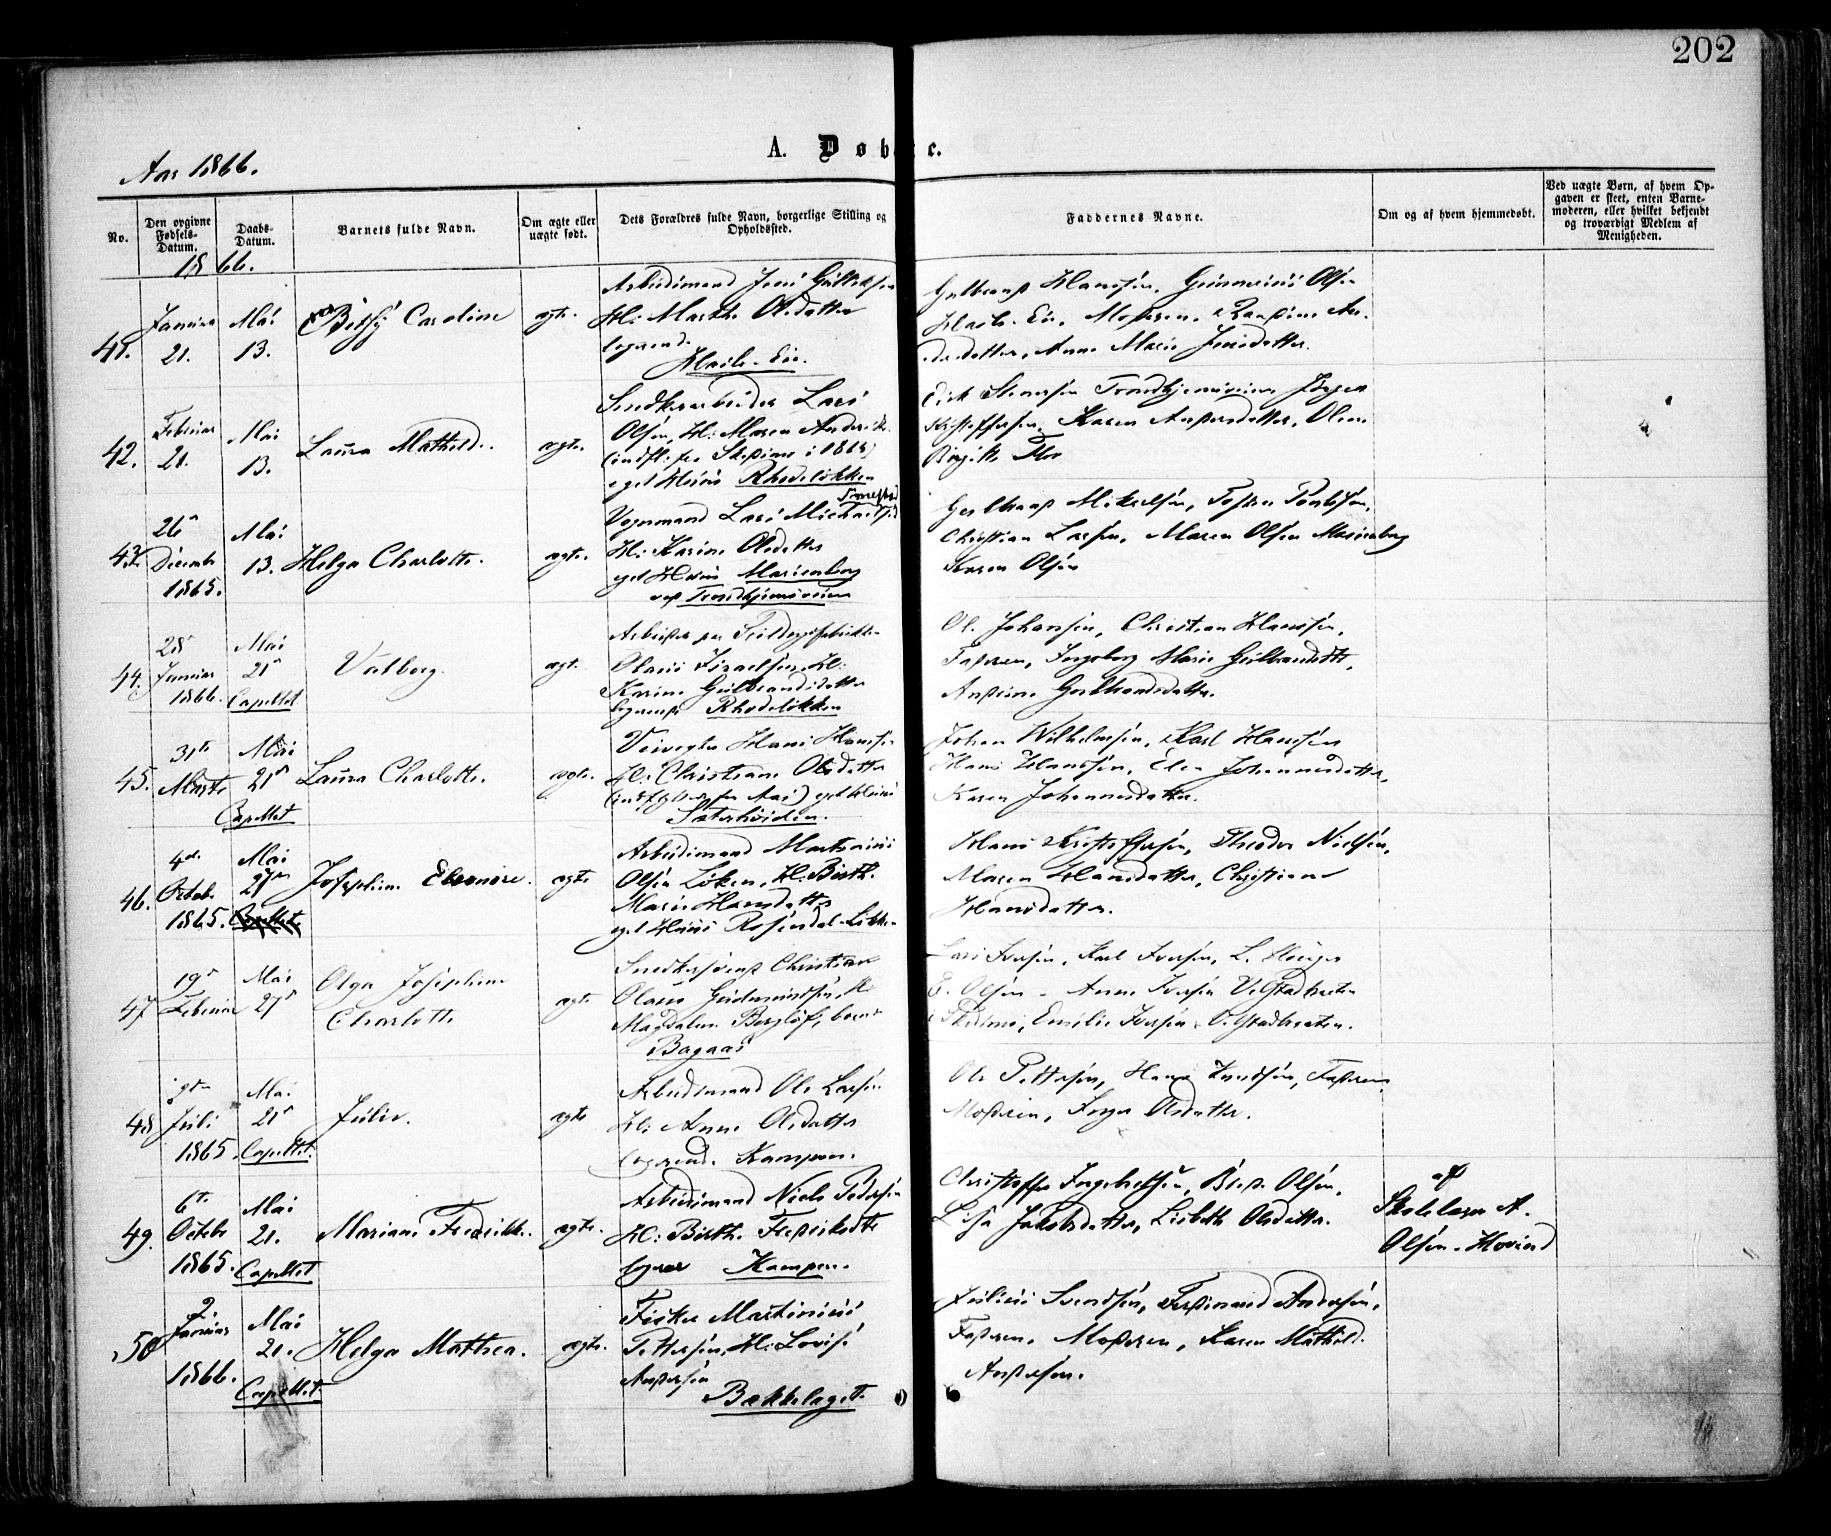 202
A. Døbte.
Aar 1866.
No.
Den opgivne Fødsels-Datum.
Daabs-Datum.
Barnets fulde Navn.
Om ægte eller uægte født.
Dets Forældres fulde Navn, borgerlige Stilling og Opholdssted.
Faddernes Navne.
Om og af hvem hjemmedøbt.
Ved uægte Børn, af hvem Opgaven er skeet, enten Barnemoderen, eller hvilket bekjendt og troværdigt Medlem af Menigheden.
1866.
41. Januar 21. Mai 13. Betsy Caroline ægte.
Arbeidsmand Jens
H: Marthe Olsdatter
logerende
Hasle-Eie.
Gulbrand Hanssen, Gunnerius Olsen
Hasle-Eie, Moderen,
Anne Marie Jensdatter.
42. Februar 21. Mai 13. Laura Mathilde. ægte.
Snedkerarbeider Lars
Olsen, H: Maren
eget Huus Rhodeløkken
Erik Stenersen Trondhjemsveien Jørgen
Kristoffersen, Karen Andersdatter, Oline
Birgitte
43. 26de December 1865. Mai 13. Helga Charlotte. ægte.
Vognmand Lars
H: Karine Olsdatter
eget Huus Marienborg
ved Trondhjemsveien
Gulbrand Mikkelsen,
Christian Larsen, Maren Olsen Marienborg
Karen Olsen
44. 28de Januar 1866. Mai 21de Capellet Valborg. ægte.
Arbeider paa
Olaus Israelsen, H:
Karine Gulbrandsdatter
logerende Rhodeløkken
Ole Johansen, Christian Hanssen,
Faderen, Ingeborg Marie Gulbrandsdtr,
Andrine Gulbrandsdatter.
45. 31te Marts Mai 21de Capellet Laura Charlotte. ægte.
Veivogter Hans Hanssen
H: Christiane Olsdatter
eget Huus
Johan Wilhelmsen, Karl Hanssen
Hans Hanssen, Elen Johannesdatter,
Karen Johannesdatter.
46. 4de October 1865. Mai 27de Josephine Eleonore. ægte
Arbeidsmand Martinius
Olsen Løken, H: Berthe
Marie Hansdatter
eget Huus Rosendal-Løkken
Hans Kristoffersen, Theodor Nielsen,
Maren Hansdatter, Christiane
Hansdatter.
47 19de Februar Mai 27de Olga Josephine Charlotte ægte
Snedkersvend Christian
Olaus Gudmundsen, H:
Magdalene Berglöf, boende
Bagaas
Lars Iversen, Karl Iversen,
Olsen - Anne Iversen
Emilie Iversen
48 9de Juli 1865 Mai 21de Capellet. Julie. ægte
Arbeidsmand Ole Larsen
H: Anne Olsdatter
logerende Kampen.
Ole Pettersen, Hans Knudsen, Faderen
Moderen, Inger Olsdatter.
49. 6te October 1865. Mai 21. Capellet Mariane Fredrikke. ægte.
Arbeidsmand Niels Pedersen
H: Berthe Fredriksdtr
logerer Kampen.
Christoffer Ingebretsen, Olsen,
Lisa Jakobsdatter, Lisbeth Olsdatter.
af
Skolelærer A.
Olsen-Hovind
50 2. Januar 1866. Mai 21. Capellet Helga Mathea. ægte.
Fisker Martinius
Pettersen, H: Lovise
Andersen
Bækkelaget.
Julius Svendsen, Ferdinand Andersen,
Faderen, Moderen, Karen Mathilde
Andersen.